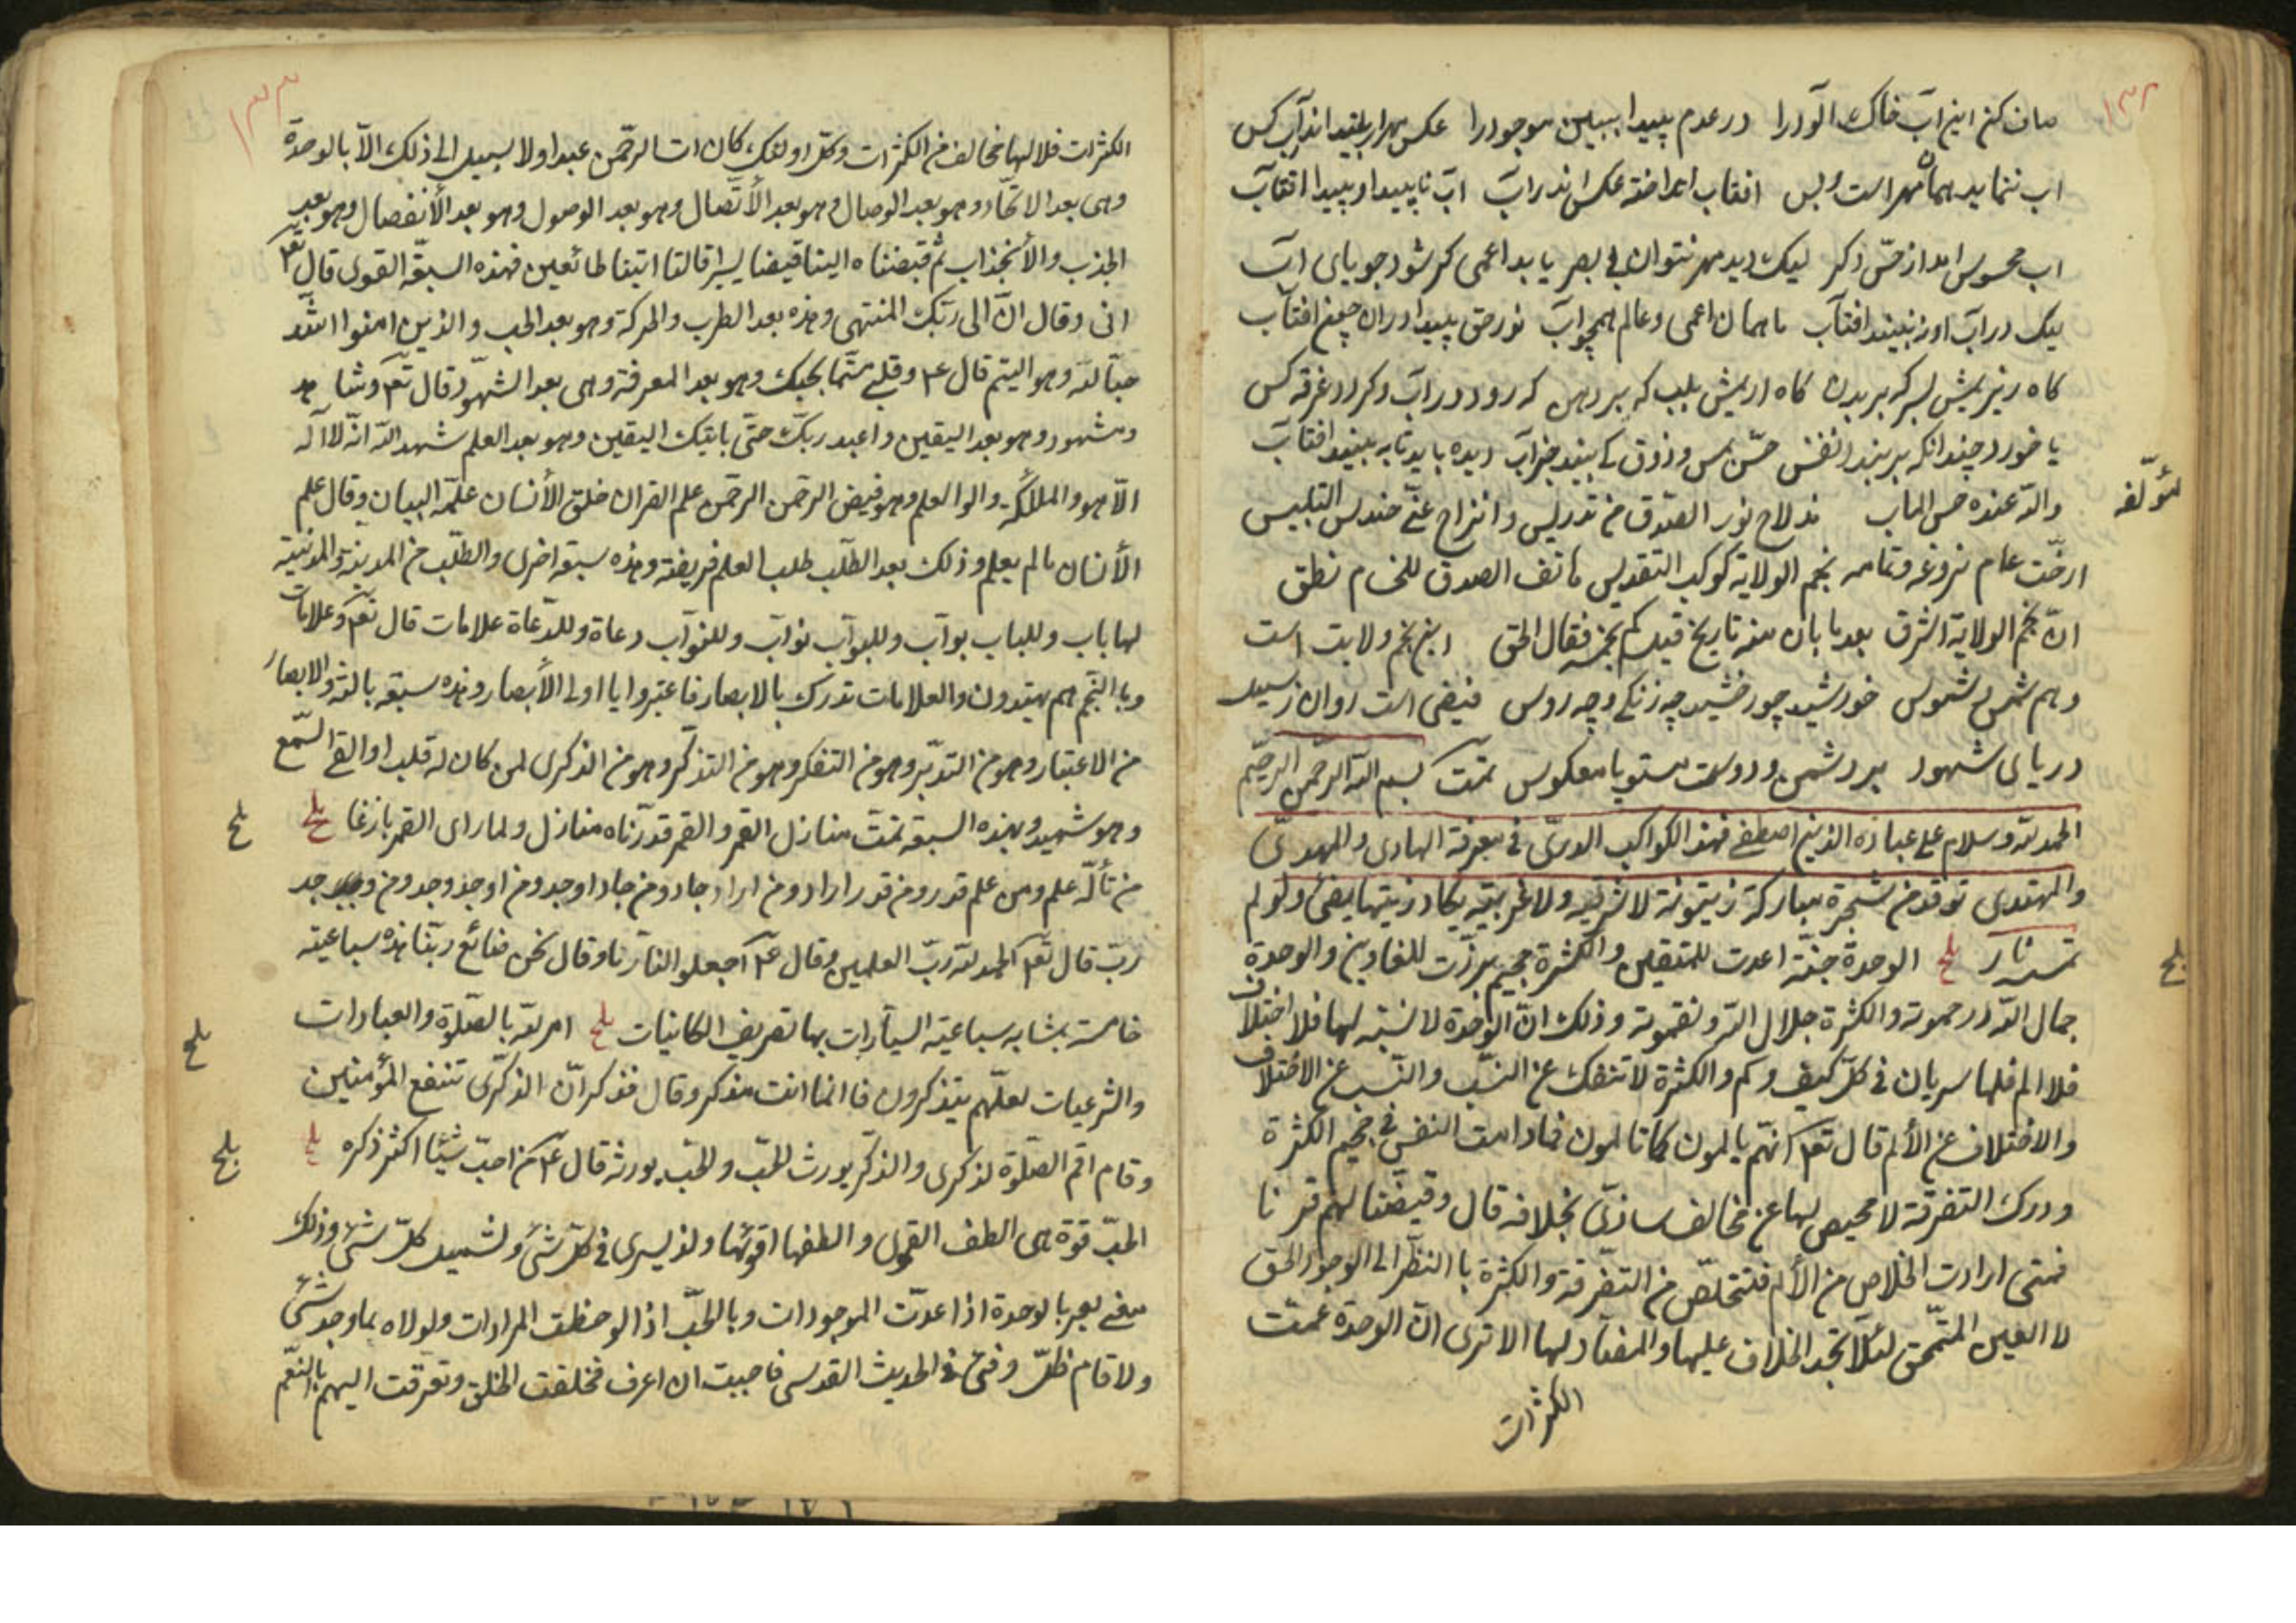 ۱۳۲
صاف کن این آب خاک آلود را در عدم پیدا ببین موجود را عکس مهر ار بیند اندر آب کس
اب ننماید همان مهر است و بس افتاب انداخته عکس اندر اب اب ناپیدا و پیدا افتاب
اب محسوس امد از حسّ دگر لیک دید مهر نتوان بی بصر یابد اعمی گر شود جویای اب
لیک در اب او نبیند افتاب ما همان اعمی و عالم همچو اب نور حق پیدا در ان چون افتاب
کاه ریز پیش لب که بر بدن کاه اریش بلب که بر دهن که رود در اب و گردد غرقه کس
یا خورد چندانکه بر بندد نفس حسّ لمس و ذوق کی بیند جز اب دیده باید تا به بیند افتاب
لمؤلّفه
والله عنده حسن الماب قد لاح نور الصدق من تدریس وانزاح عنّی حندس التلبیس
ارخّت عام بزوغه وتمامه نجم الولایة کوکب التقدیس هاتف الصدق للختام نطق
انّ نجم الولایة اشرق بعد ما بان منه تاریخ قید کم نجمه فقال الحق این نجم ولایت است
وهم شمس شموس خورشید چو رخشید چه زنگی و چه روس فیضی است روان ز سیل
دریای شهود بر دشمن و دوست مستویا معکوس تمت بسم الله الرحمن الرحیم
الحمد لله وسلام علی عباده الذین اصطفی فهذا الکواکب الدریّ فی معرفة الهادی والمهدی
والمهتدی توقد من شجرة مبارکة زیتونة لا شرقیه ولا غربیّه یکاد زیتها یضیٔ ولو لم
تمسسه نار بلح الوحدة جنّة اعدت للمتقین والکثرة جحیم برزّت للغاوین والوحدة
بلح
جمال الله ورحموته والکثرة جلال الله ونقموته وذلک انّ الوحدة لا نسبة لها فلا اختلاف
فلا الم فلها سریان فی کلّ کیف وکم والکثرة لا تنفک عن النسَب والنسَب عن الاختلاف
والاختلاف عن الألم قال تعا انهّم یالمون کما تالمون فما دامت النفس فی جحیم الکثرة
ودرک التفرقة لا محیص لها عن مخالف ساذیّ بخلافه قال وقیضنا لهم قرنا
فمتی ارادت الخلاص من الألم فلتتخلّص من التفرقة والکثرة باالنظر الی الوجود الحق
لا العین المتحّق لئلّا تجد الخلاف علیها والمضاد لها الا تری انّ الوحدة عمّت
الکثرات
۱۳۳
الکثرات فلا لها مخالف من الکثرات وکل اولئک کان ات الرحمن عبدا ولا سبیل الی ذلک الاّ بالوحدة
وهی بعد الاتحّاد وهو بعد الوصال وهو بعد الأتّصال وهو بعد الوصول وهو بعد الأنفصال وهو بعد
الجذب والأنجذاب ثم قبضناه الینا قبضا یسیرا قالتا اتینا طائعین فهذه السبعة القوی قال تعا
انی وقال انّ الی ربّک المنتهی وهذه بعد الطرب والحرکة وهو بعد الحب والذین امنوا اشدّ
حبّا لله وهو الیتم قال ع وقلبی متیّما بحبک وهو بعد المعرفة وهی بعد الشهود قال تعا وشاهد
ومشهود وهو بعد الیقین واعبد ربّک حتّی یاتیک الیقین وهو بعد العلم شهد الله انّه لا اله
الاّ هو والملائکة واولوا العلم وهو فیض الرحمن الرحمن علم القران خلق الأنسان علّمه البیان وقال علم
الأنسان ما لم یعلم وذلک بعد الطّلب طلب العلم فریضة وهذه سبعة اخری والطّلب من المدینة والمدینة
لها باب وللباب بوّاب وللبوّاب نوّاب وللنوّاب دعاة وللدّعاة علامات قال تعا وعلامات
وبا النّجم هم یهتدون والعلامات تدرک بالابصار فاعتبروا یا اولی الأبصار وهذه سبعة بالغة والابصار
من الاعتبار وهو من التدبّر وهو من التفکر وهو من التذکّر وهو من الذکری لمن کان له قلب او القی السّمع
وهو شهید وبهذه السبعة تمّت منازل القمر والقمر قدّرناه منازل ولما رای القمر بازغا بلح
بلح
من تألّه علم ومن علم قدر ومن قدر اراد ومن اراد جاد ومن جاد اوجد ومن اوجد وجد ومن وجد حمد
ربّ قال تعا الحمد لله ربّ العلمین وقال ع اجعلوا لنا ربّا وقال نحن صنائع ربّنا هذه سباعیة
خامسة بمشابه سباعیة السیّارات بها تصریف الکائنیات بلح امر تعا بالصّلوة والعبادات
بلح
والشرعیات لعلّهم یتذکرون فانما انت مذکر وقال فذکر انّ الذکری تنفع المؤمنین
وقام اقم الصّلوة لذکری والذکر یورث للحّب وللحّب یورثه قال ع من احبّ شیئا اکثر ذکره بلح
بلح
الحبّ قوّة هی الطف القوی والطفها اقویها ولذ یسری فی کلّ شیٔ ولشمید کلّ شیٔ وذلک
معنی یعبر بالوحدة اذا عدّت الموجودات وبالحبّ اذا لوحظت المرادات ولولاه ما وجد شیٔ
ولا قام ظلّ وفیٔ فی الحدیث القدسی فاحببت ان اعرف فخلقت الخلق وتعرفت الیهم باالنعّم